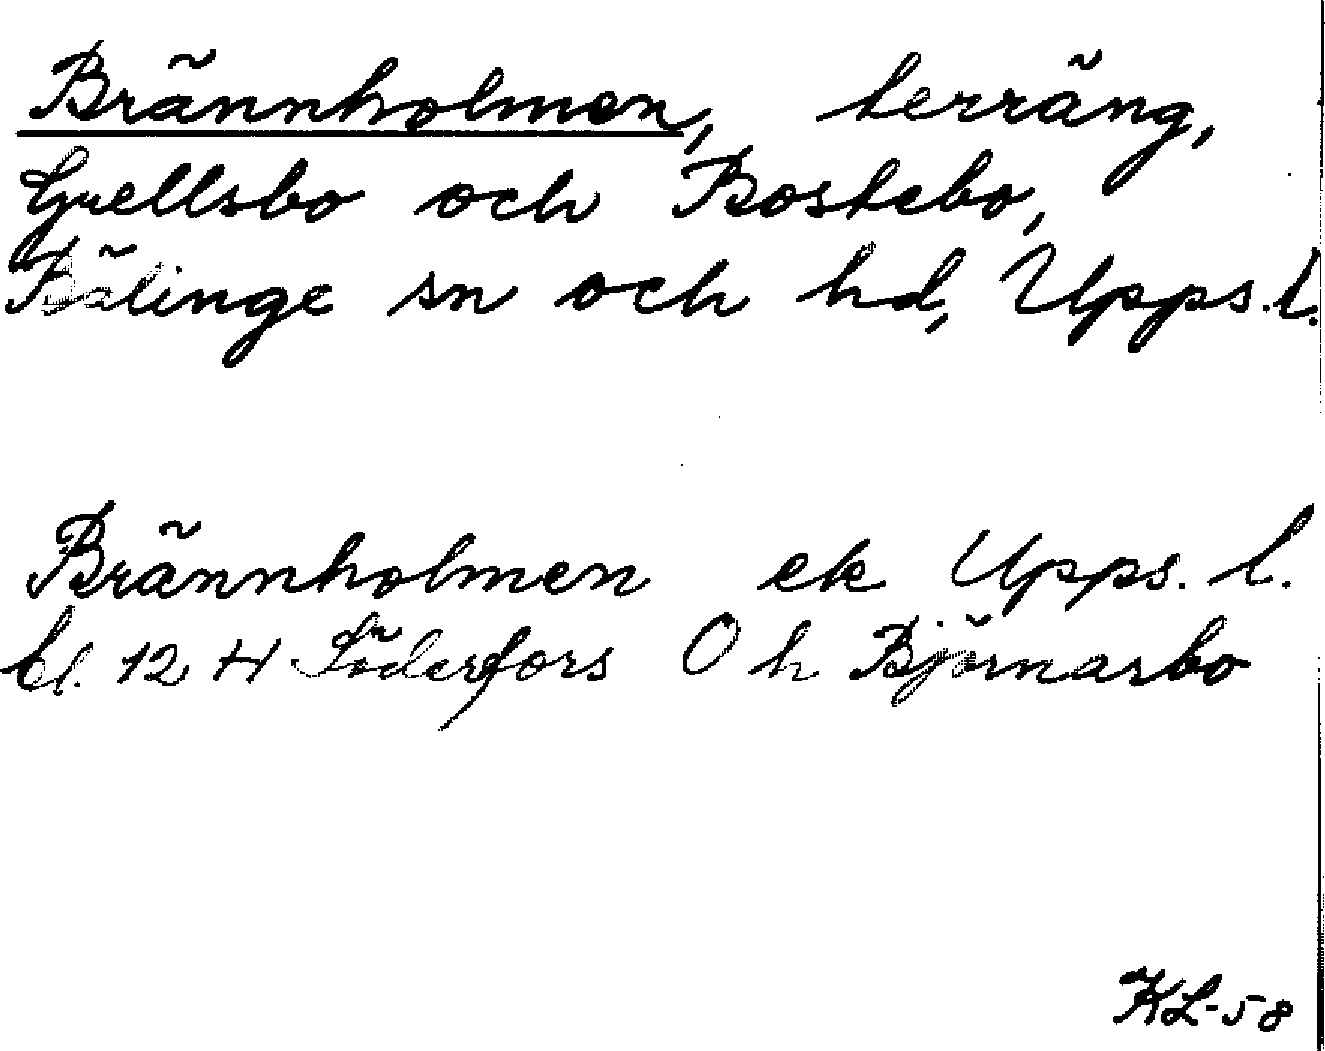 Brännholmen, terräng,
Grellsbo och Bostebo,
Bälinge sn och hd, Upps. l.
Brännholmen ek Upps. l.
bl. 12 H Söderfors O h Björnarbo
KL-58